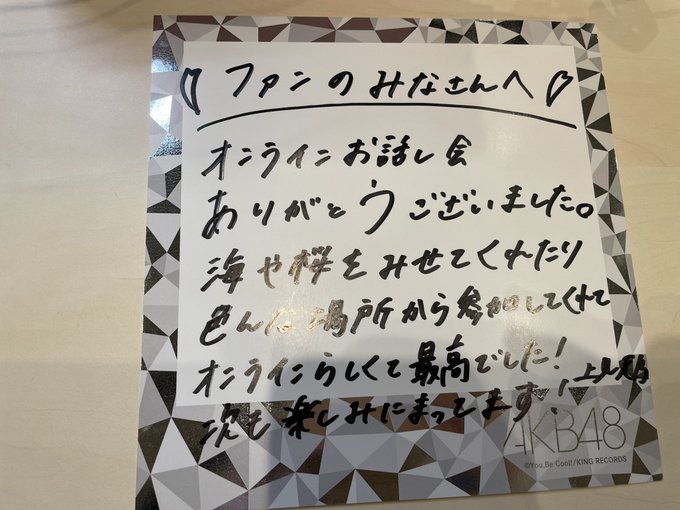 ファンのみなさんへ
オンラインお話し会
ありがとうございました。
海や桜をみせてくれたり
色んな場所から参加してくれて
オンラインらしくて最高でした！
次も楽しみにまってます！
AKB48
©You,Be Cool!/KING RECORDS